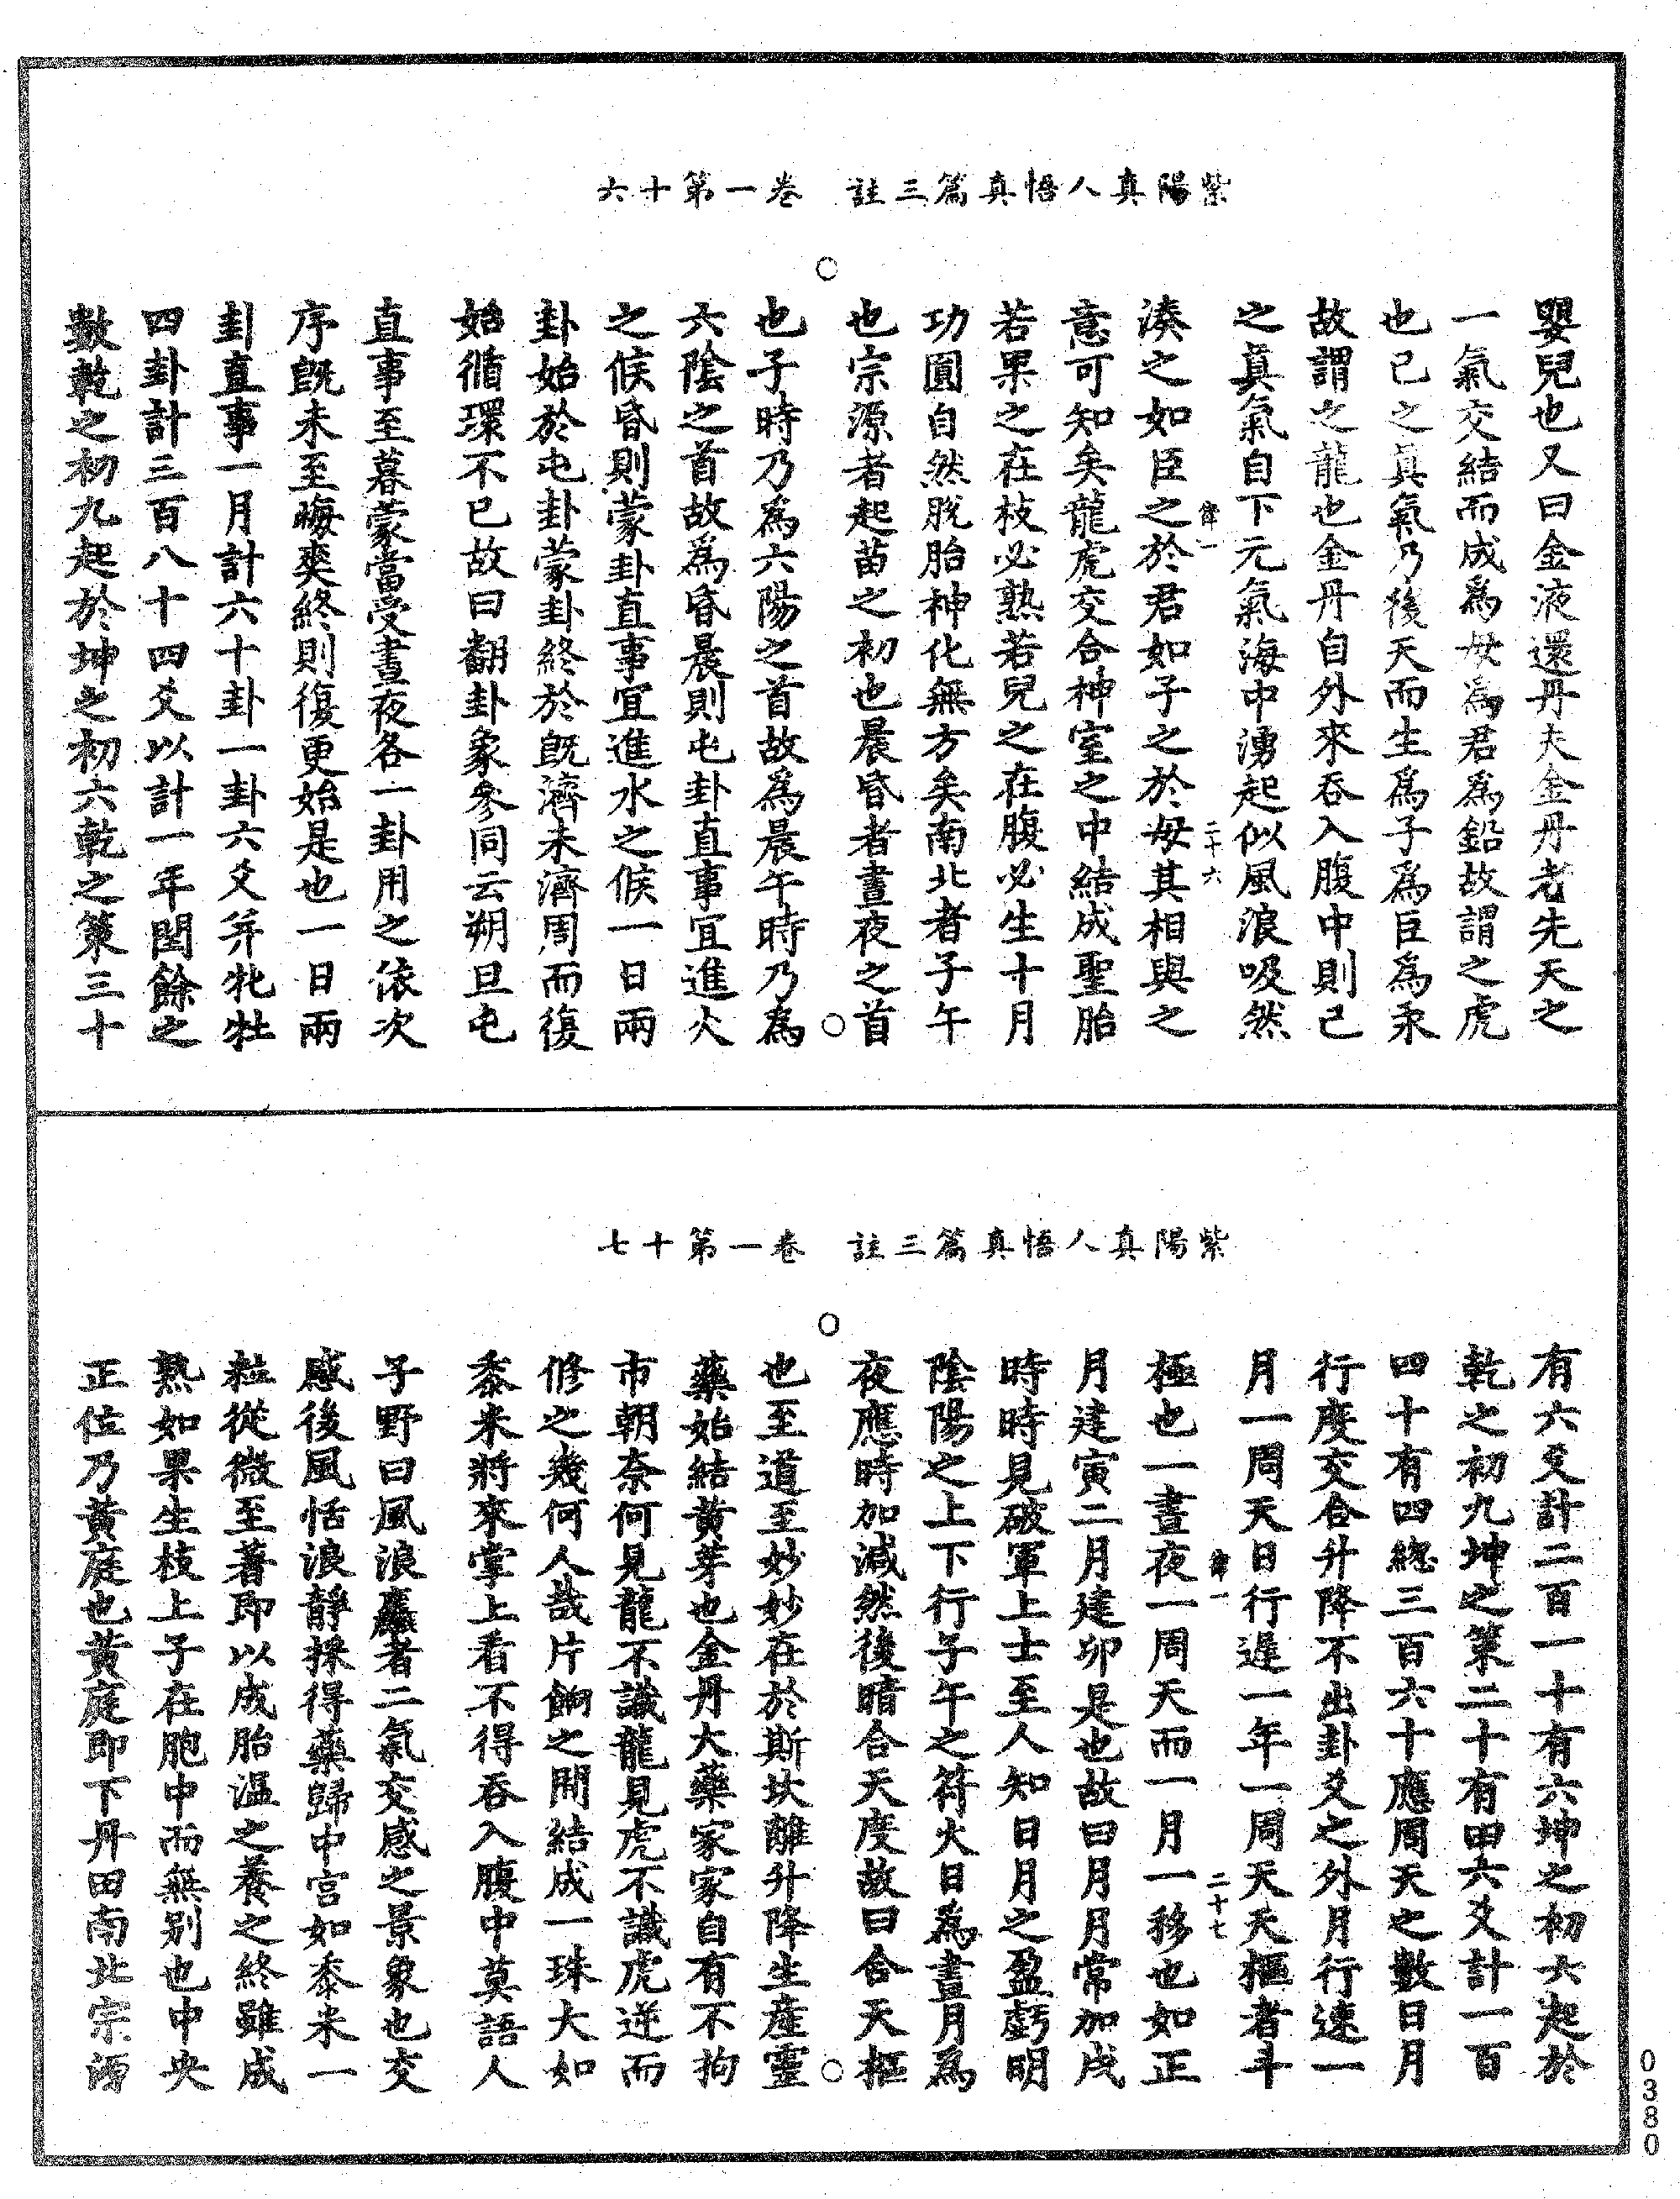 紫陽真人悟真篇三註　卷一第十六
嬰兒也又曰金液還丹夫金丹者先天之
一氣交結而成為母為君為鉛故謂之虎
也己之真氣乃後天而生為子為臣為汞
故謂之龍也金丹自外來吞入腹中則己
之真氣自下元氣海中湧起似風浪吸然
律一　二十六
湊之如臣之於君如子之於母其相與之
意可知矣龍虎交合神室之中結成聖胎
若果之在枝必熟若兒之在腹必生十月
功圓自然脫胎神化無方矣南北者子午
也宗源者起苗之初也晨昏者晝夜之首
也子時乃為六陽之首故為晨午時乃為
六陰之首故為昏晨則屯卦直事宜進火
之候昏則蒙卦直事宜進水之候一日兩
卦始於屯卦蒙卦終於既濟未濟周而復
始循環不已故曰翻卦象參同云朔旦屯
直事至暮蒙當受晝夜各一卦用之依次
序既未至晦爽終則復更始是也一日兩
卦直事一月計六十卦一卦六爻并牝牡
四卦計三百八十四爻以計一年閏餘之
數乾之初九起於坤之初六乾之策三十
紫陽真人悟真篇三註　卷一第十七
有六爻計二百一十有六坤之初六起於
乾之初九坤之策二十有四六爻計一百
四十有四總三百六十應周天之數日月
行度交合升降不出卦爻之外月行速一
月一周天日行遲一年一周天天樞者斗
律一　二十七
極也一晝夜一周天而一月一移也如正
月建寅二月建卯是也故曰月月常加戌
時時見破軍上士至人知日月之盈虧明
陰陽之上下行子午之符火日為晝月為
夜應時加減然後暗合天度故曰合天樞
也至道至妙妙在於斯坎離升降生產靈
藥始結黃芽也金丹大藥家家自有不拘
市朝奈何見龍不識龍見虎不識虎逆而
修之幾何人哉片餉之間結成一珠大如
黍米將來掌上看不得吞入腹中莫語人
子野曰風浪麤者二氣交感之景象也交
感後風恬浪靜採得藥歸中宮如黍米一
粒從微至著即以成胎溫之養之終雖成
熟如果生枝上子在胞中而無別也中央
正位乃黃庭也黃庭即下丹田南北宗源
0380